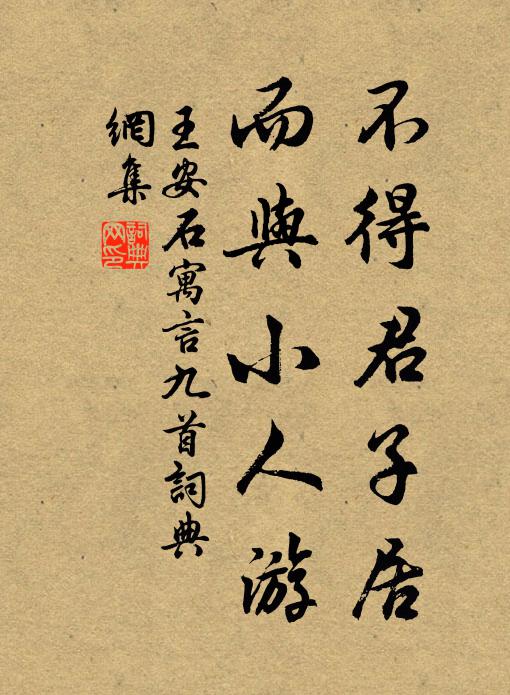 不得君子居
而與小人游
王安石寓言九首詞典
網集
詞典網印